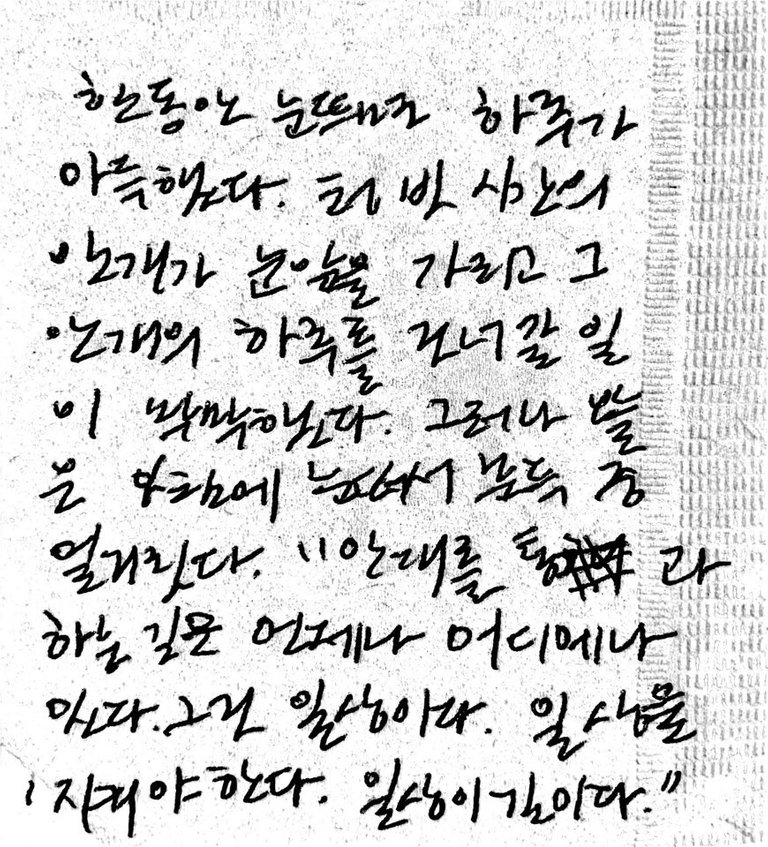 한동안 눈뜨면 하루가
아득했다. 텅 빈 시간의
안개가 눈앞을 가리고 그
안개의 하루를 건너갈 일
이 막막했다. 그러나 오늘
은 아침에 눈떠서 문득 중
얼거렸다. "안개를 통과
하는 길은 언제나 어디메나
있다. 그건 일상이다. 일상을
지켜야 한다. 일상이 길이다."